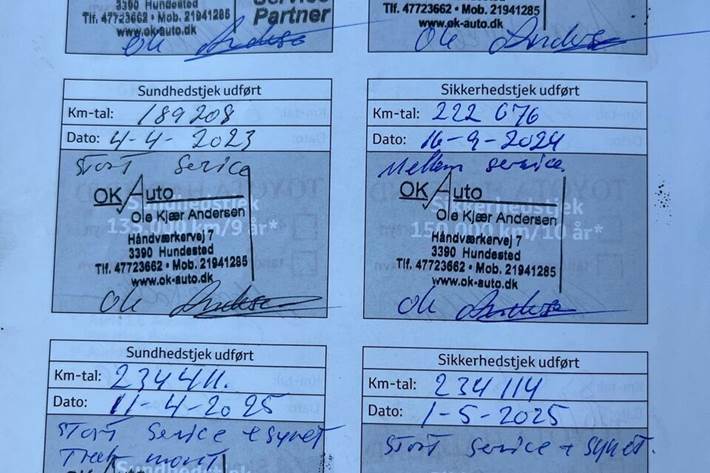 3390 Hundested
Tlf. 47723662 • Mob. 21941285
www.ok-auto.dk
Service
Partner
3390 Hundested
Tlf. 47723662 • Mob. 21941285
www.ok-auto.dk
Ole Andersen
Ole Andersen
Sundhedstjek udført
Km-tal: 189208
Dato: 4-4-2023
Stort Service
OK Auto
Ole Kjær Andersen
Sundhedstjek
135.000 km/9 år*
Håndværkervej 7
3390 Hundested
Tlf. 47723662 • Mob. 21941285
www.ok-auto.dk
Ole Andersen
Sikkerhedstjek udført
Km-tal: 222 676
Dato: 16-9-2024
Mellem service
OK Auto
Ole Kjær Andersen
Sikkerhedstjek
150.000 km/10 år*
Håndværkervej 7
3390 Hundested
Tlf. 47723662 • Mob. 21941285
www.ok-auto.dk
Ole Andersen
Sundhedstjek udført
Km-tal: 234411.
Dato: 11-4-2025
Stort Service + synet
Sundhedstjek
Sikkerhedstjek udført
Km-tal: 234114
Dato: 1-5-2025
Stort service + synet.